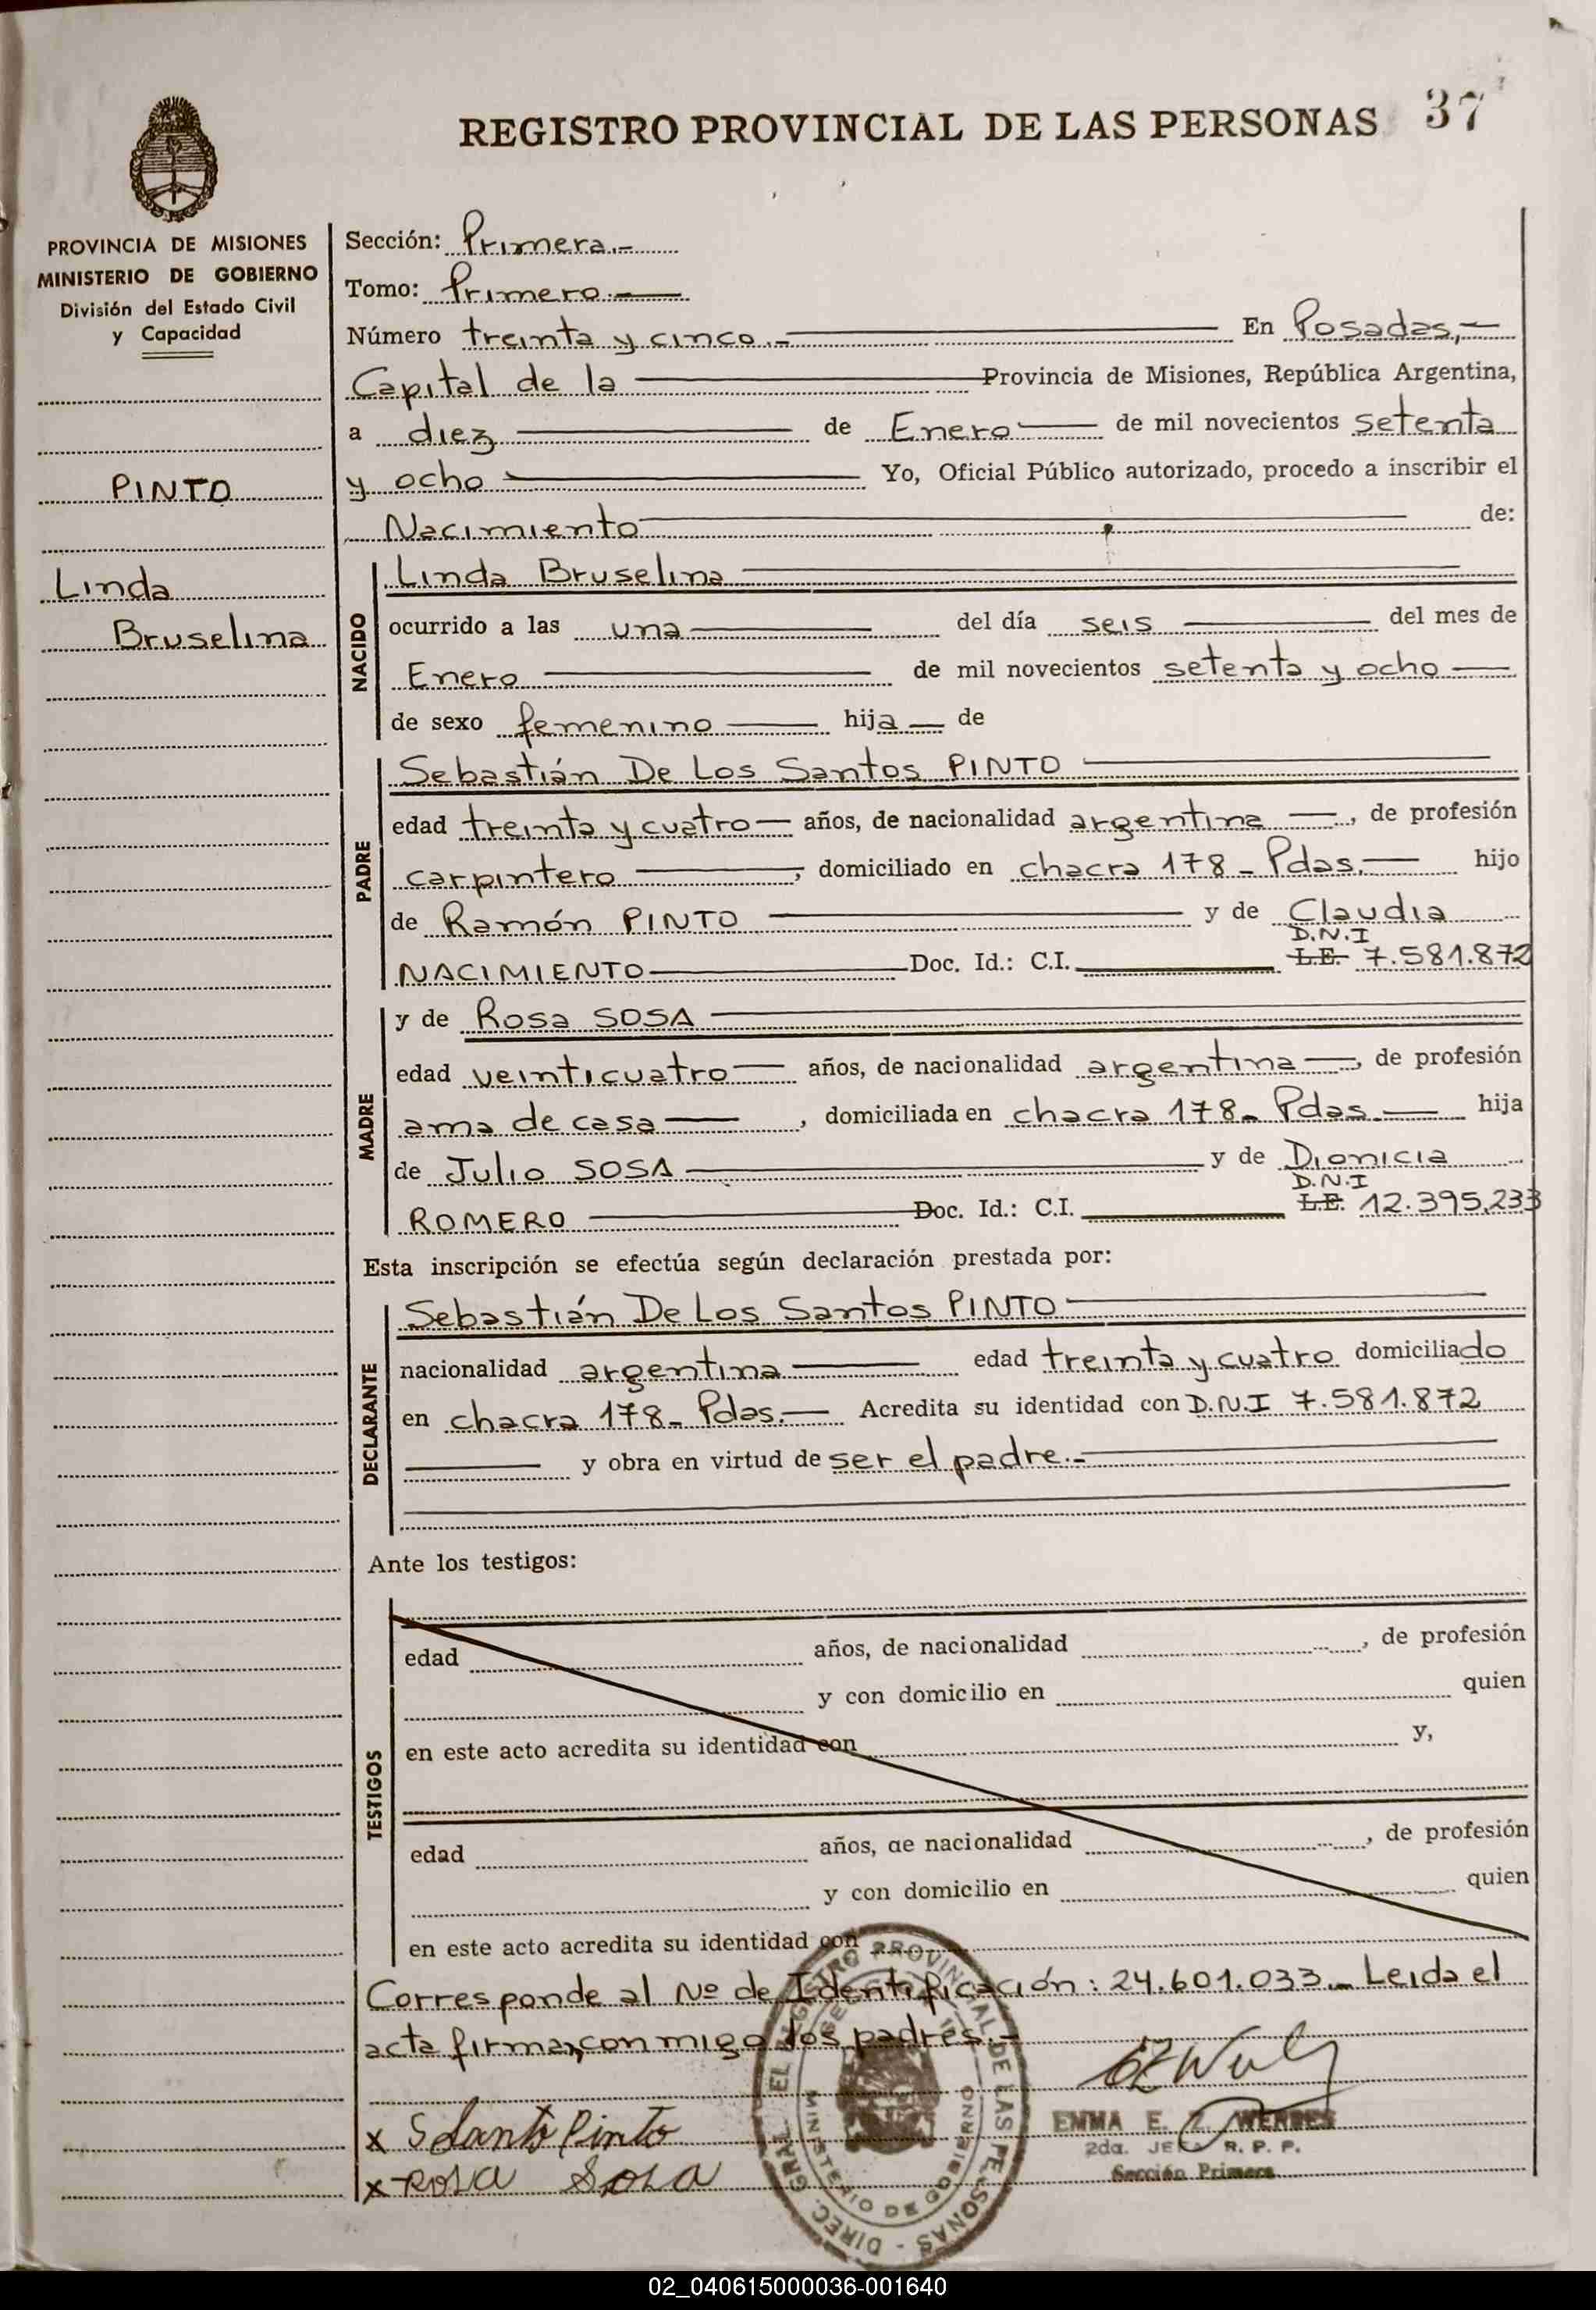 REGISTRO PROVINCIAL DE LAS PERSONAS 37
PROVINCIA DE MISIONES
MINISTERIO DE GOBIERNO
División del Estado Civil
y Capacidad
PINTO
Linda
Bruselina
Sección: Primera.-
Tomo: Primero.-
Número treinta y cinco.- En Posadas,-
Capital de la Provincia de Misiones, República Argentina,
a diez de Enero de mil novecientos setenta
y ocho Yo, Oficial Público autorizado, procedo a inscribir el
Nacimiento de:
NACIDO
Linda Bruselina
ocurrido a las una del día seis del mes de
Enero de mil novecientos setenta y ocho
de sexo femenino hija de
PADRE
Sebastián De Los Santos PINTO
edad treinta y cuatro años, de nacionalidad argentina, de profesión
carpintero, domiciliado en chacra 178- Pdas.- hijo
de Ramón PINTO y de Claudia
D.N.I
NACIMIENTO Doc. Id.: C.I. L.E. 7.581.872
MADRE
y de Rosa SOSA
edad veinticuatro años, de nacionalidad argentina, de profesión
ama de casa, domiciliada en chacra 178- Pdas.- hija
de Julio SOSA y de Dionicia
D.N.I
ROMERO Doc. Id.: C.I. L.E. 12.395.233
Esta inscripción se efectúa según declaración prestada por:
DECLARANTE
Sebastián De Los Santos PINTO
nacionalidad argentina edad treinta y cuatro domiciliado
en chacra 178- Pdas.- Acredita su identidad con D.N.I 7.581.872
y obra en virtud de ser el padre.-
Ante los testigos:
TESTIGOS
edad años, de nacionalidad , de profesión
y con domicilio en quien
en este acto acredita su identidad con y,
edad años, de nacionalidad , de profesión
y con domicilio en quien
en este acto acredita su identidad con
Corresponde al Nº de Identificación: 24.601.033.- Leida el
acta firman conmigo los padres.-
x S Santo Pinto
x Rosa Sosa
EMMA E. Z. WENDES
2da. JEFA R. P. P.
Sección Primera
DIREC. GRAL. EL REGISTRO PROVINCIAL DE LAS PERSONAS
MINISTERIO DE GOBIERNO
02_040615000036-001640